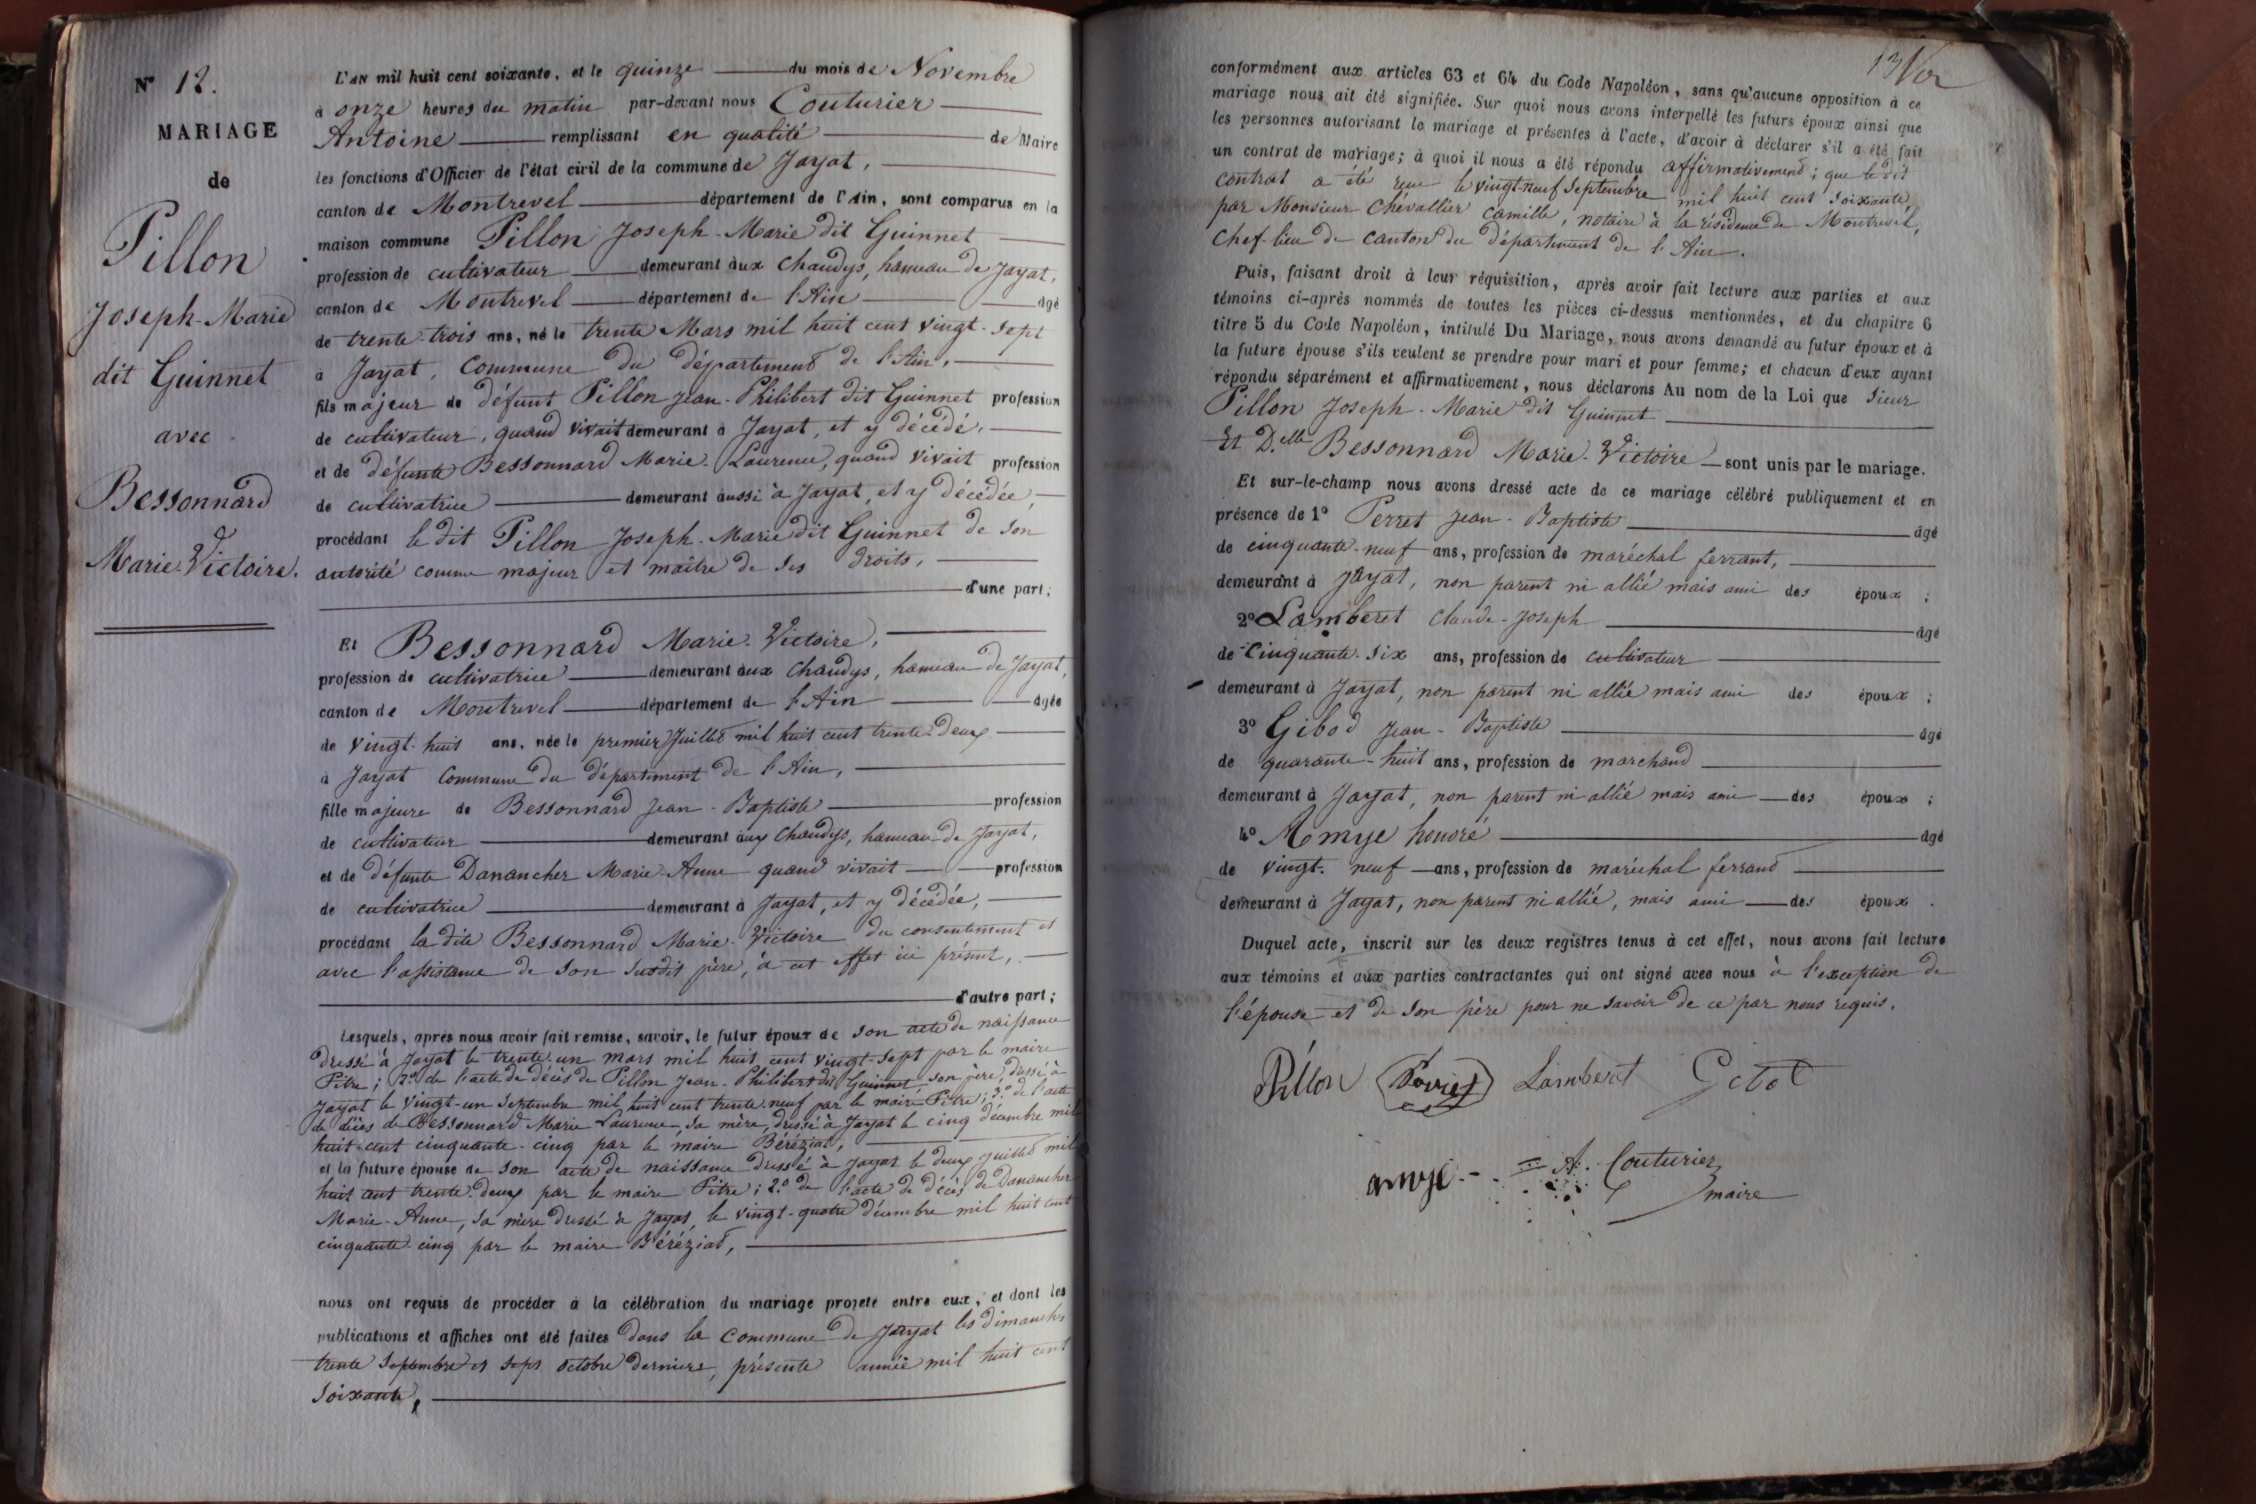 N° 12.
MARIAGE
de
Pillon
Joseph-Marie
dit Guinnet
avec
Bessonnard
Marie-Victoire.
L'AN mil huit cent soixante, et le quinze du mois de Novembre
à onze heures du matin par-devant nous Couturier
Antoine remplissant en qualité de Maire
les fonctions d'Officier de l'état civil de la commune de Jayat,
canton de Montrevel département de l'Ain, sont comparus en la
maison commune Pillon Joseph-Marie dit Guinnet
profession de cultivateur demeurant aux Chaudys, hameau de Jayat,
canton de Montrevel département de l'Ain âgé
de trente-trois ans, né le trente Mars mil huit cent vingt-sept
à Jayat, Commune du département de l'Ain,
fils majeur de défunt Pillon Jean-Philibert dit Guinnet profession
de cultivateur, quand vivait demeurant à Jayat, et y décédé,
et de défunte Bessonnard Marie-Laurence, quand vivait profession
de cultivatrice demeurant aussi à Jayat, et y décédée,
procédant le dit Pillon Joseph-Marie dit Guinnet de son
autorité comme majeur et maître de ses droits,
d'une part;
Et Bessonnard Marie-Victoire,
profession de cultivatrice demeurant aux Chaudys, hameau de Jayat,
canton de Montrevel département de l'Ain âgée
de vingt-huit ans, née le premier Juillet mil huit cent trente-deux
à Jayat Commune du département de l'Ain,
fille majeure de Bessonnard Jean-Baptiste profession
de cultivateur demeurant aux Chaudys, hameau de Jayat,
et de défunte Danancher Marie-Anne quand vivait profession
de cultivatrice demeurant à Jayat, et y décédée,
procédant la dite Bessonnard Marie-Victoire du consentement et
avec l'assistance de son susdit père, à cet effet ici présent,
d'autre part;
Lesquels, après nous avoir fait remise, savoir, le futur époux de son acte de naissance
dressé à Jayat le trente-un mars mil huit cent vingt-sept par le maire
Pitre; 2° de l'acte de décès de Pillon Jean-Philibert dit Guinnet, son père, dressé à
Jayat le vingt-un Septembre mil huit cent trente-neuf par le maire Pitre; 3° de l'acte
de décès de Bessonnard Marie Laurence, sa mère, dressé à Jayat le cinq décembre mil
huit cent cinquante-cinq par le maire Béréziat,
et la future épouse de son acte de naissance dressé à Jayat le deux juillet mil
huit cent trente-deux par le maire Pitre; 2° de l'acte de décès de Danancher
Marie-Anne, sa mère dressé à Jayat, le vingt-quatre décembre mil huit cent
cinquante-cinq par le maire Béréziat,
nous ont requis de procéder à la célébration du mariage projeté entre eux, et dont les
publications et affiches ont été faites dans la Commune de Jayat les dimanches
trente Septembre et sept octobre derniers, présente année mil huit cent
soixante,
13
conformément aux articles 63 et 64 du Code Napoléon, sans qu'aucune opposition à ce
mariage nous ait été signifiée. Sur quoi nous avons interpellé les futurs époux ainsi que
les personnes autorisant le mariage et présentes à l'acte, d'avoir à déclarer s'il a été fait
un contrat de mariage; à quoi il nous a été répondu affirmativement; que le dit
contrat a été reçu le vingt-neuf Septembre mil huit cent soixante
par Monsieur Chevallier Camille, notaire à la résidence de Montrevel,
Chef-lieu de canton du département de l'Ain.
Puis, faisant droit à leur réquisition, après avoir fait lecture aux parties et aux
témoins ci-après nommés de toutes les pièces ci-dessus mentionnées, et du chapitre 6
titre 5 du Code Napoléon, intitulé Du Mariage, nous avons demandé au futur époux et à
la future épouse s'ils veulent se prendre pour mari et pour femme; et chacun d'eux ayant
répondu séparément et affirmativement, nous déclarons Au nom de la Loi que Sieur
Pillon Joseph-Marie dit Guinnet
Et D.elle Bessonnard Marie-Victoire sont unis par le mariage.
Et sur-le-champ nous avons dressé acte de ce mariage célébré publiquement et en
présence de 1° Perret Jean-Baptiste âgé
de cinquante-neuf ans, profession de maréchal ferrant,
demeurant à Jayat, non parent ni allié mais ami des époux;
2° Lamberet Claude-Joseph âgé
de Cinquante-six ans, profession de cultivateur
demeurant à Jayat, non parent ni allié mais ami des époux;
3° Gibod Jean-Baptiste âgé
de quarante-huit ans, profession de marchand
demeurant à Jayat, non parent ni allié mais ami des époux;
4° Amye honoré âgé
de vingt-neuf ans, profession de maréchal ferrand
demeurant à Jayat, non parent ni allié, mais ami des époux.
Duquel acte, inscrit sur les deux registres tenus à cet effet, nous avons fait lecture
aux témoins et aux parties contractantes qui ont signé avec nous à l'exception de
l'épouse et de son père pour ne savoir de ce par nous requis.
Pillon Lamberet
amye A. Couturier
maire